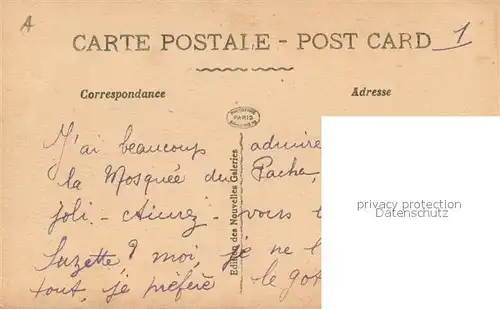 A
CARTE POSTALE - POST CARD 1
Correspondance
Adresse
PARIS
J'ai beaucoup admiré
la Mosquée du Pacha,
joli. - Aimez - vous l
Suzette? moi, je ne l
tout, je préfère le got
Edition des Nouvelles Galeries
privacy protection
Datenschutz